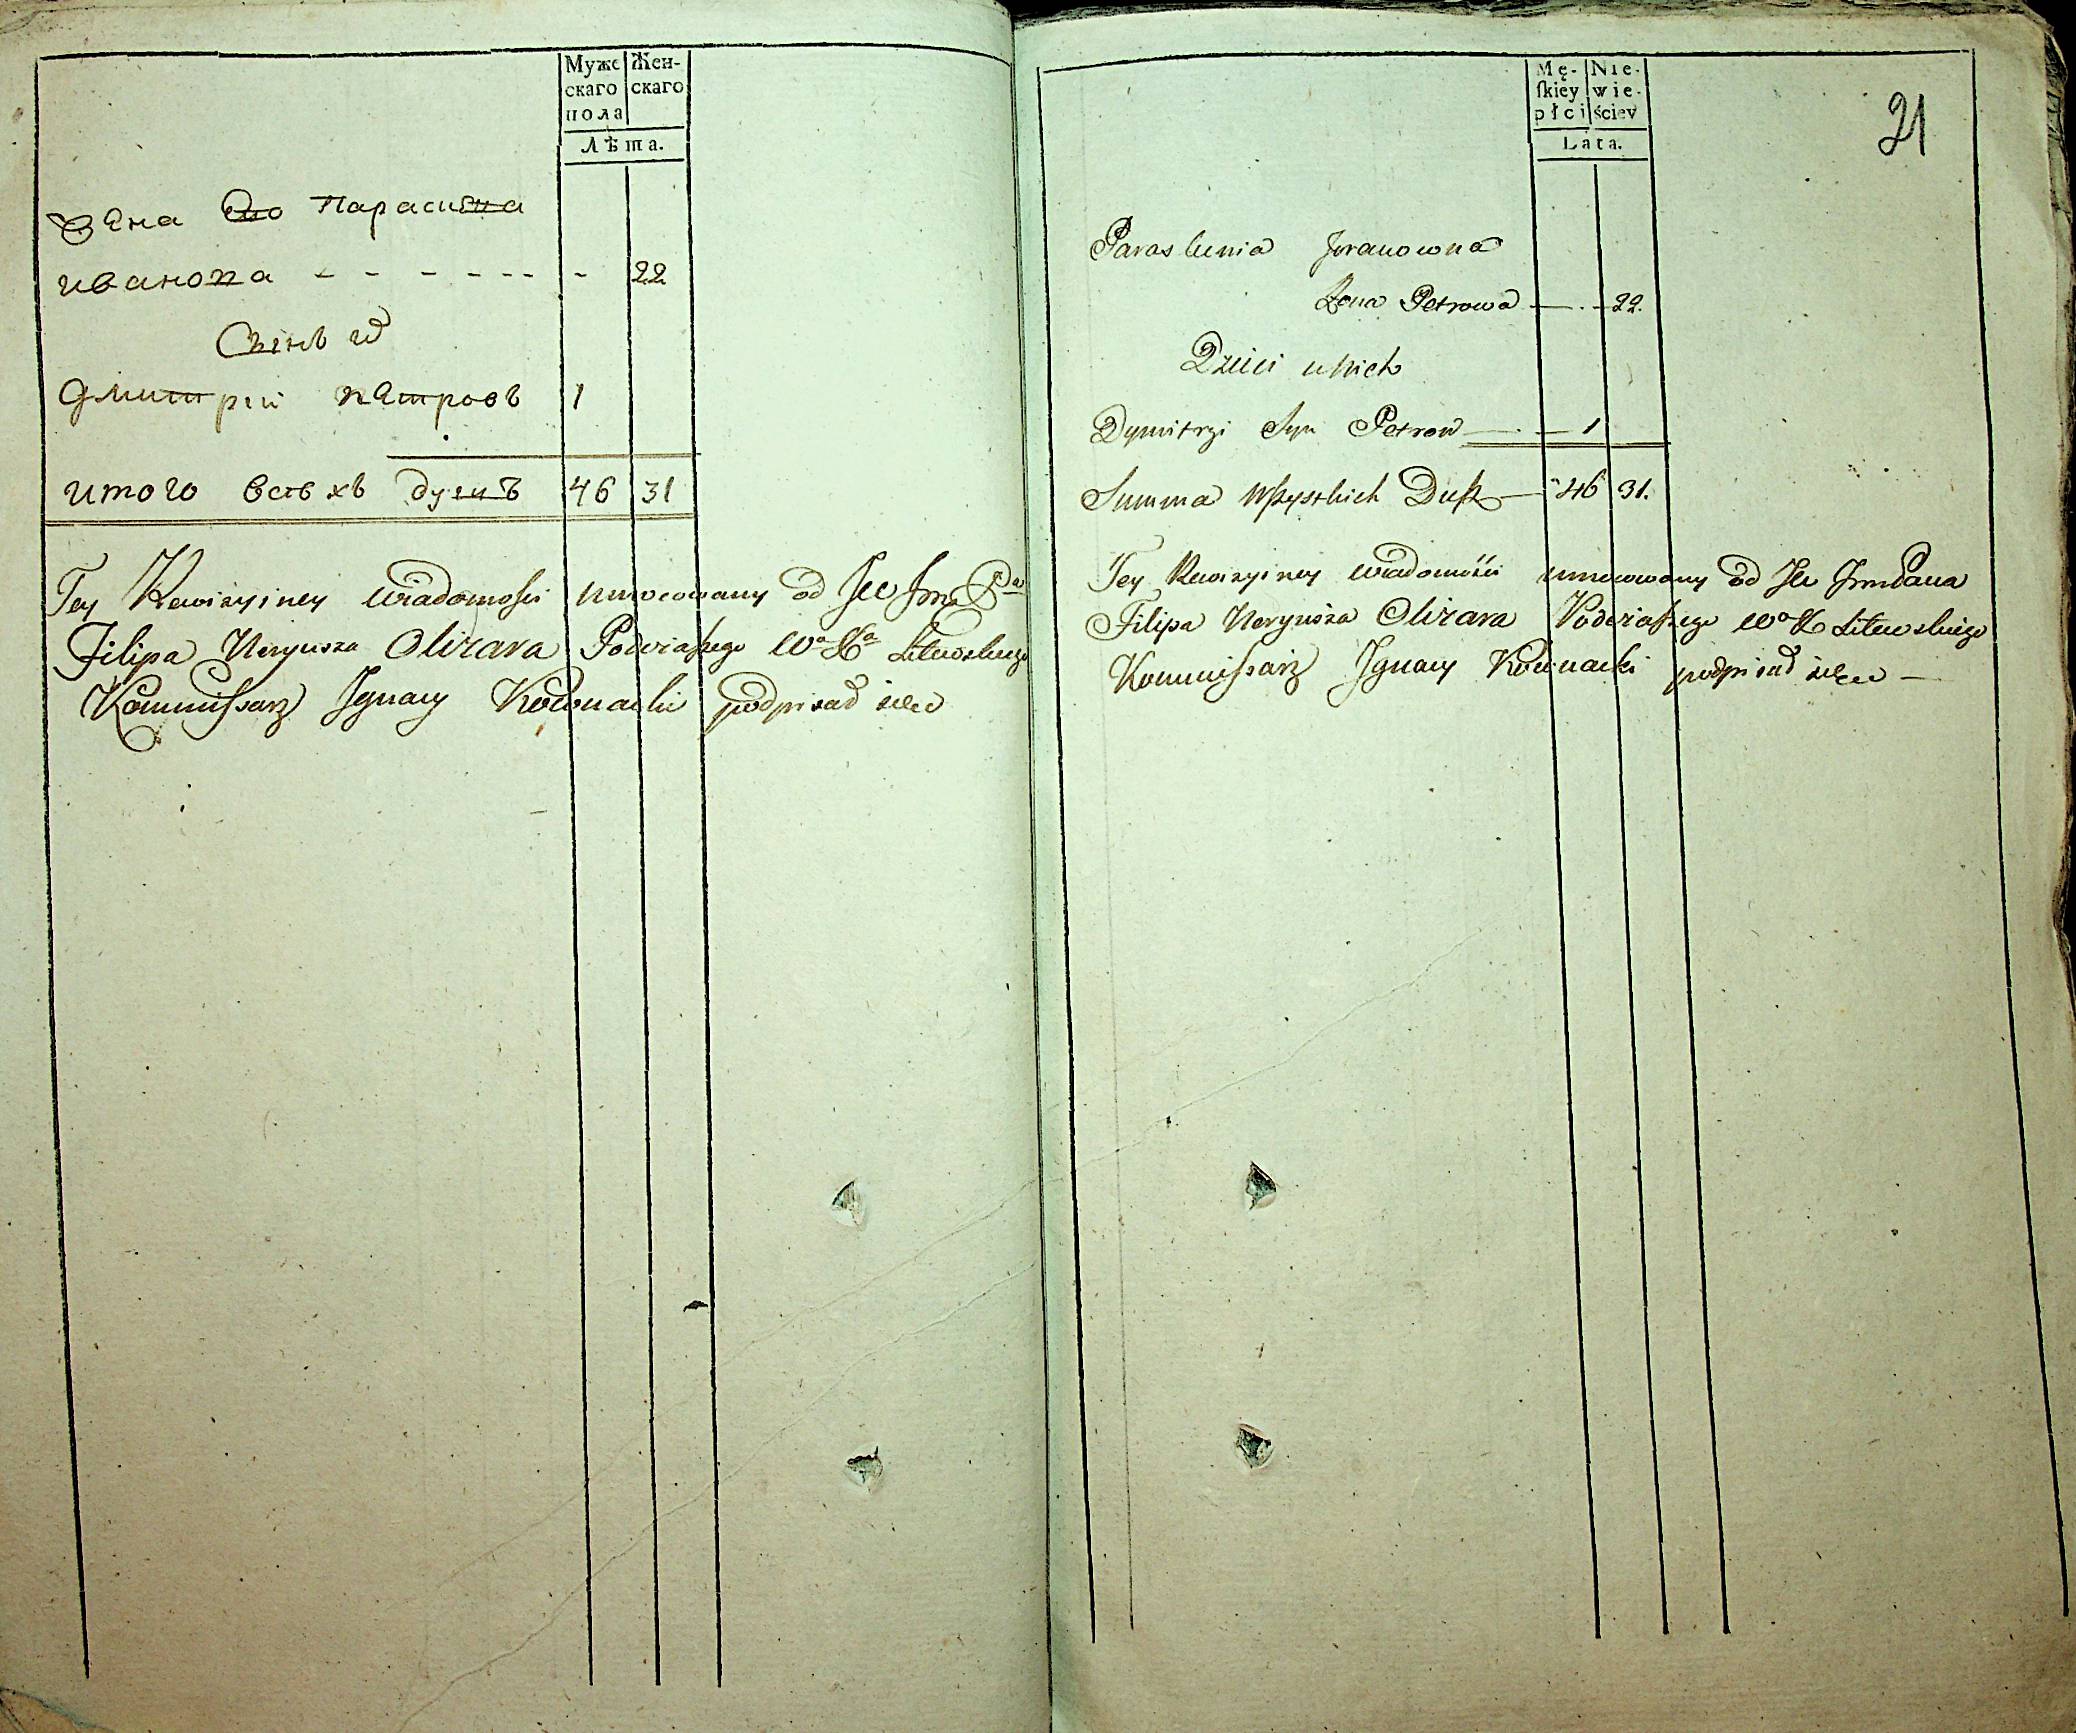 Муже Жен-
скаго скаго
пола
Лѣта.
Жена Его Параскиа
иванова - - - - - - - 22
Сынъ и
дмитрии пЕтровъ 1
итого всѣхъ душъ 46 31
Tey Rewizyiney Wiadomości umocowany od JW Jmć Pa
Filipa Neryusza Olizara Podczaszego Wo Xa Litewskiego
Kommissarz Ignacy podpisał się
21
Mę- Nie-
skiey wie-
płci ściey
Lata.
Paraskiewia Jwanowna
Żona Petrowa 22.
Dzieci u Nich
Dymitrzi Syn Petrow 1
Summa Wszystkich Dusz 46 31.
Tey Rewizyiney Wiadomości umocowany od JW Jmć Pana
Filipa Neryusza Olizara Podczaszego Wo X Litewskiego
Kommissarz Ignacy podpisał się